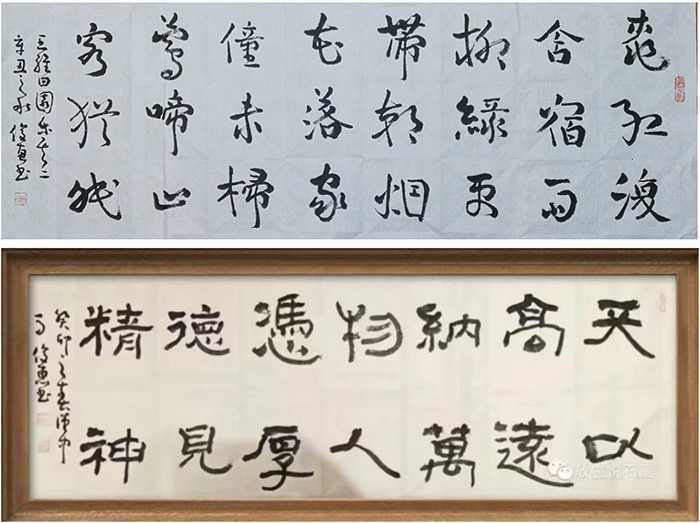 桃红復
含宿雨
柳綠更
帶朝烟
花落家
僮未掃
鶯啼山
客猶眠
王維田園樂
辛丑之秋
天以
高遠
納萬
物人
憑厚
德見
精神
癸卯之春漢中